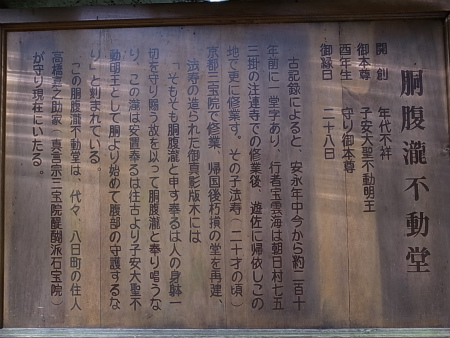 胴腹瀧不動堂
開創 年代不祥
御本尊 子安大聖不動明王
酉年生 守り御本尊
御縁日 二十八日
古記録によると、安永年中今から約二百十
年前に一堂字あり、行者宝雲海は朝日村七五
三掛の注連寺での修業後、遊佐に帰依しこの
地で更に修業す。その子法寿、二十才の頃)
京都三宝院で修業、帰国後朽損の堂を再建、
法寿の造られた御真影版木には
「そもそも胴腹瀧と申す奉るは人の身躰一
切を守り賜う故を以って胴腹瀧と奉り唱うな
り、この瀧は安置奉るは往古より子安大聖不
動明王として胴より始めて腹部の守護するな
り」と刻まれている。
この「胴腹瀧不動堂は、代々、八日町の住人
高橋 之助家(真言宗三宝院醍醐派石宝院)
が守り現在にいたる。